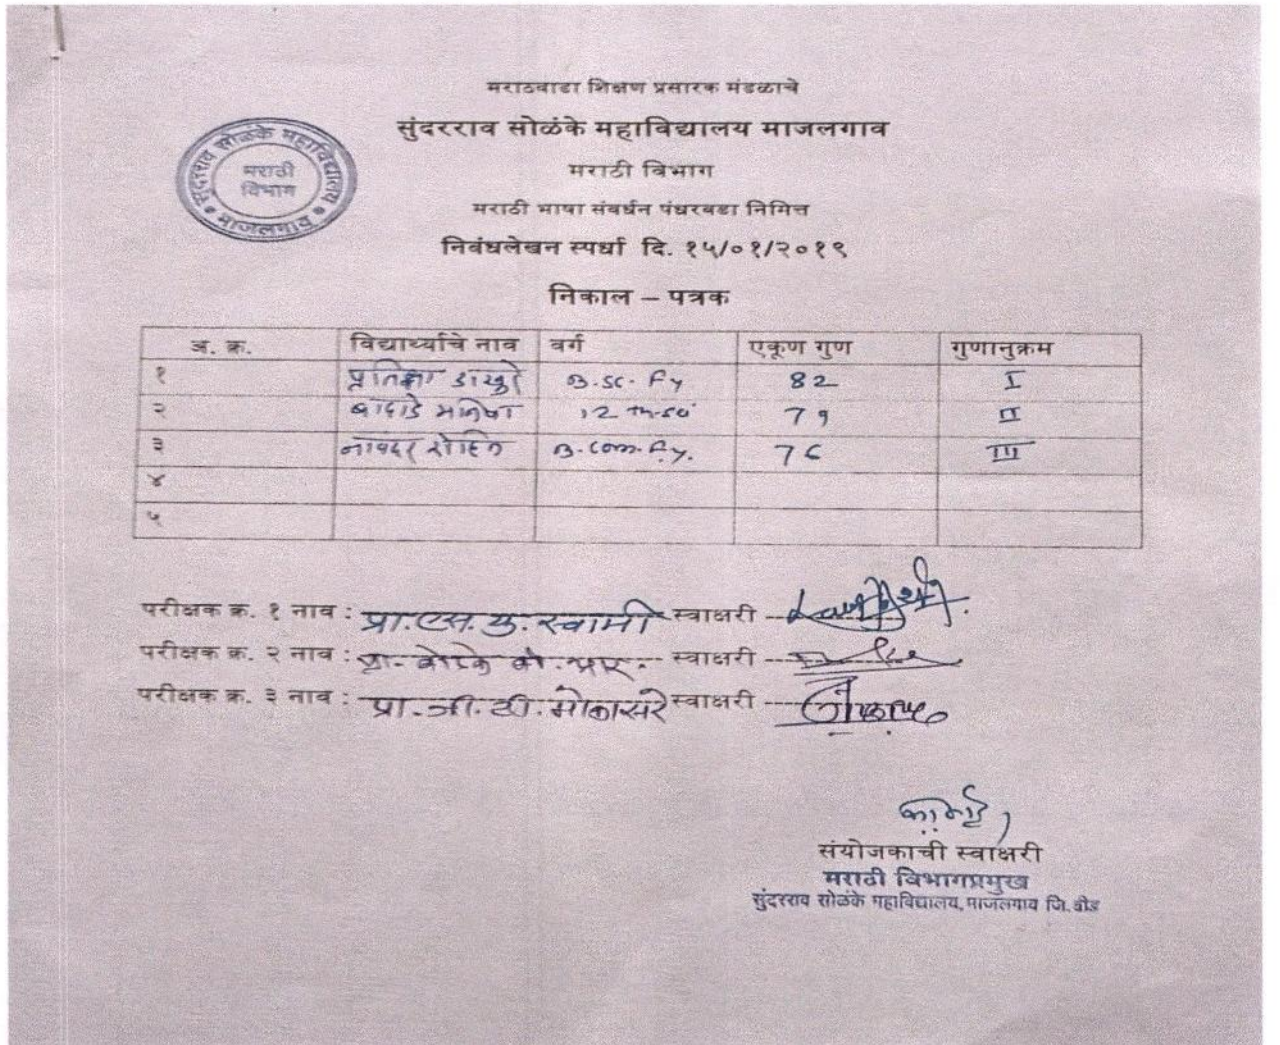 मराठवाडा शिक्षण प्रसारक मंडळाचे
सुंदरराव सोळंके महाविद्यालय माजलगाव
मराठी विभाग
मराठी भाषा संवर्धन पंधरवडा निमित्त
निबंधलेखन स्पर्धा दि. १५/०१/२०१९
सुंदरराव सोळंके महाविद्यालय
मराठी
विभाग
माजलगाव
निकाल – पत्रक
अ. क्र. विद्यार्थ्याचे नाव वर्ग एकूण गुण गुणानुक्रम
१ प्रतिक्षा डाखुरे B.sc. Fy 82 I
२ मनिषा 12 th 79 II
३ रोहित B.com. F.y. 76 III
४
५
परीक्षक क्र. १ नाव : प्रा.एस.यु.स्वामी स्वाक्षरी ---
परीक्षक क्र. २ नाव : प्रा. स्वाक्षरी ---
परीक्षक क्र. ३ नाव : प्रा.जी.टी.मोकासरे स्वाक्षरी ---
संयोजकाची स्वाक्षरी
मराठी विभागप्रमुख
सुंदरराव सोळंके महाविद्यालय, माजलगाव जि. बीड